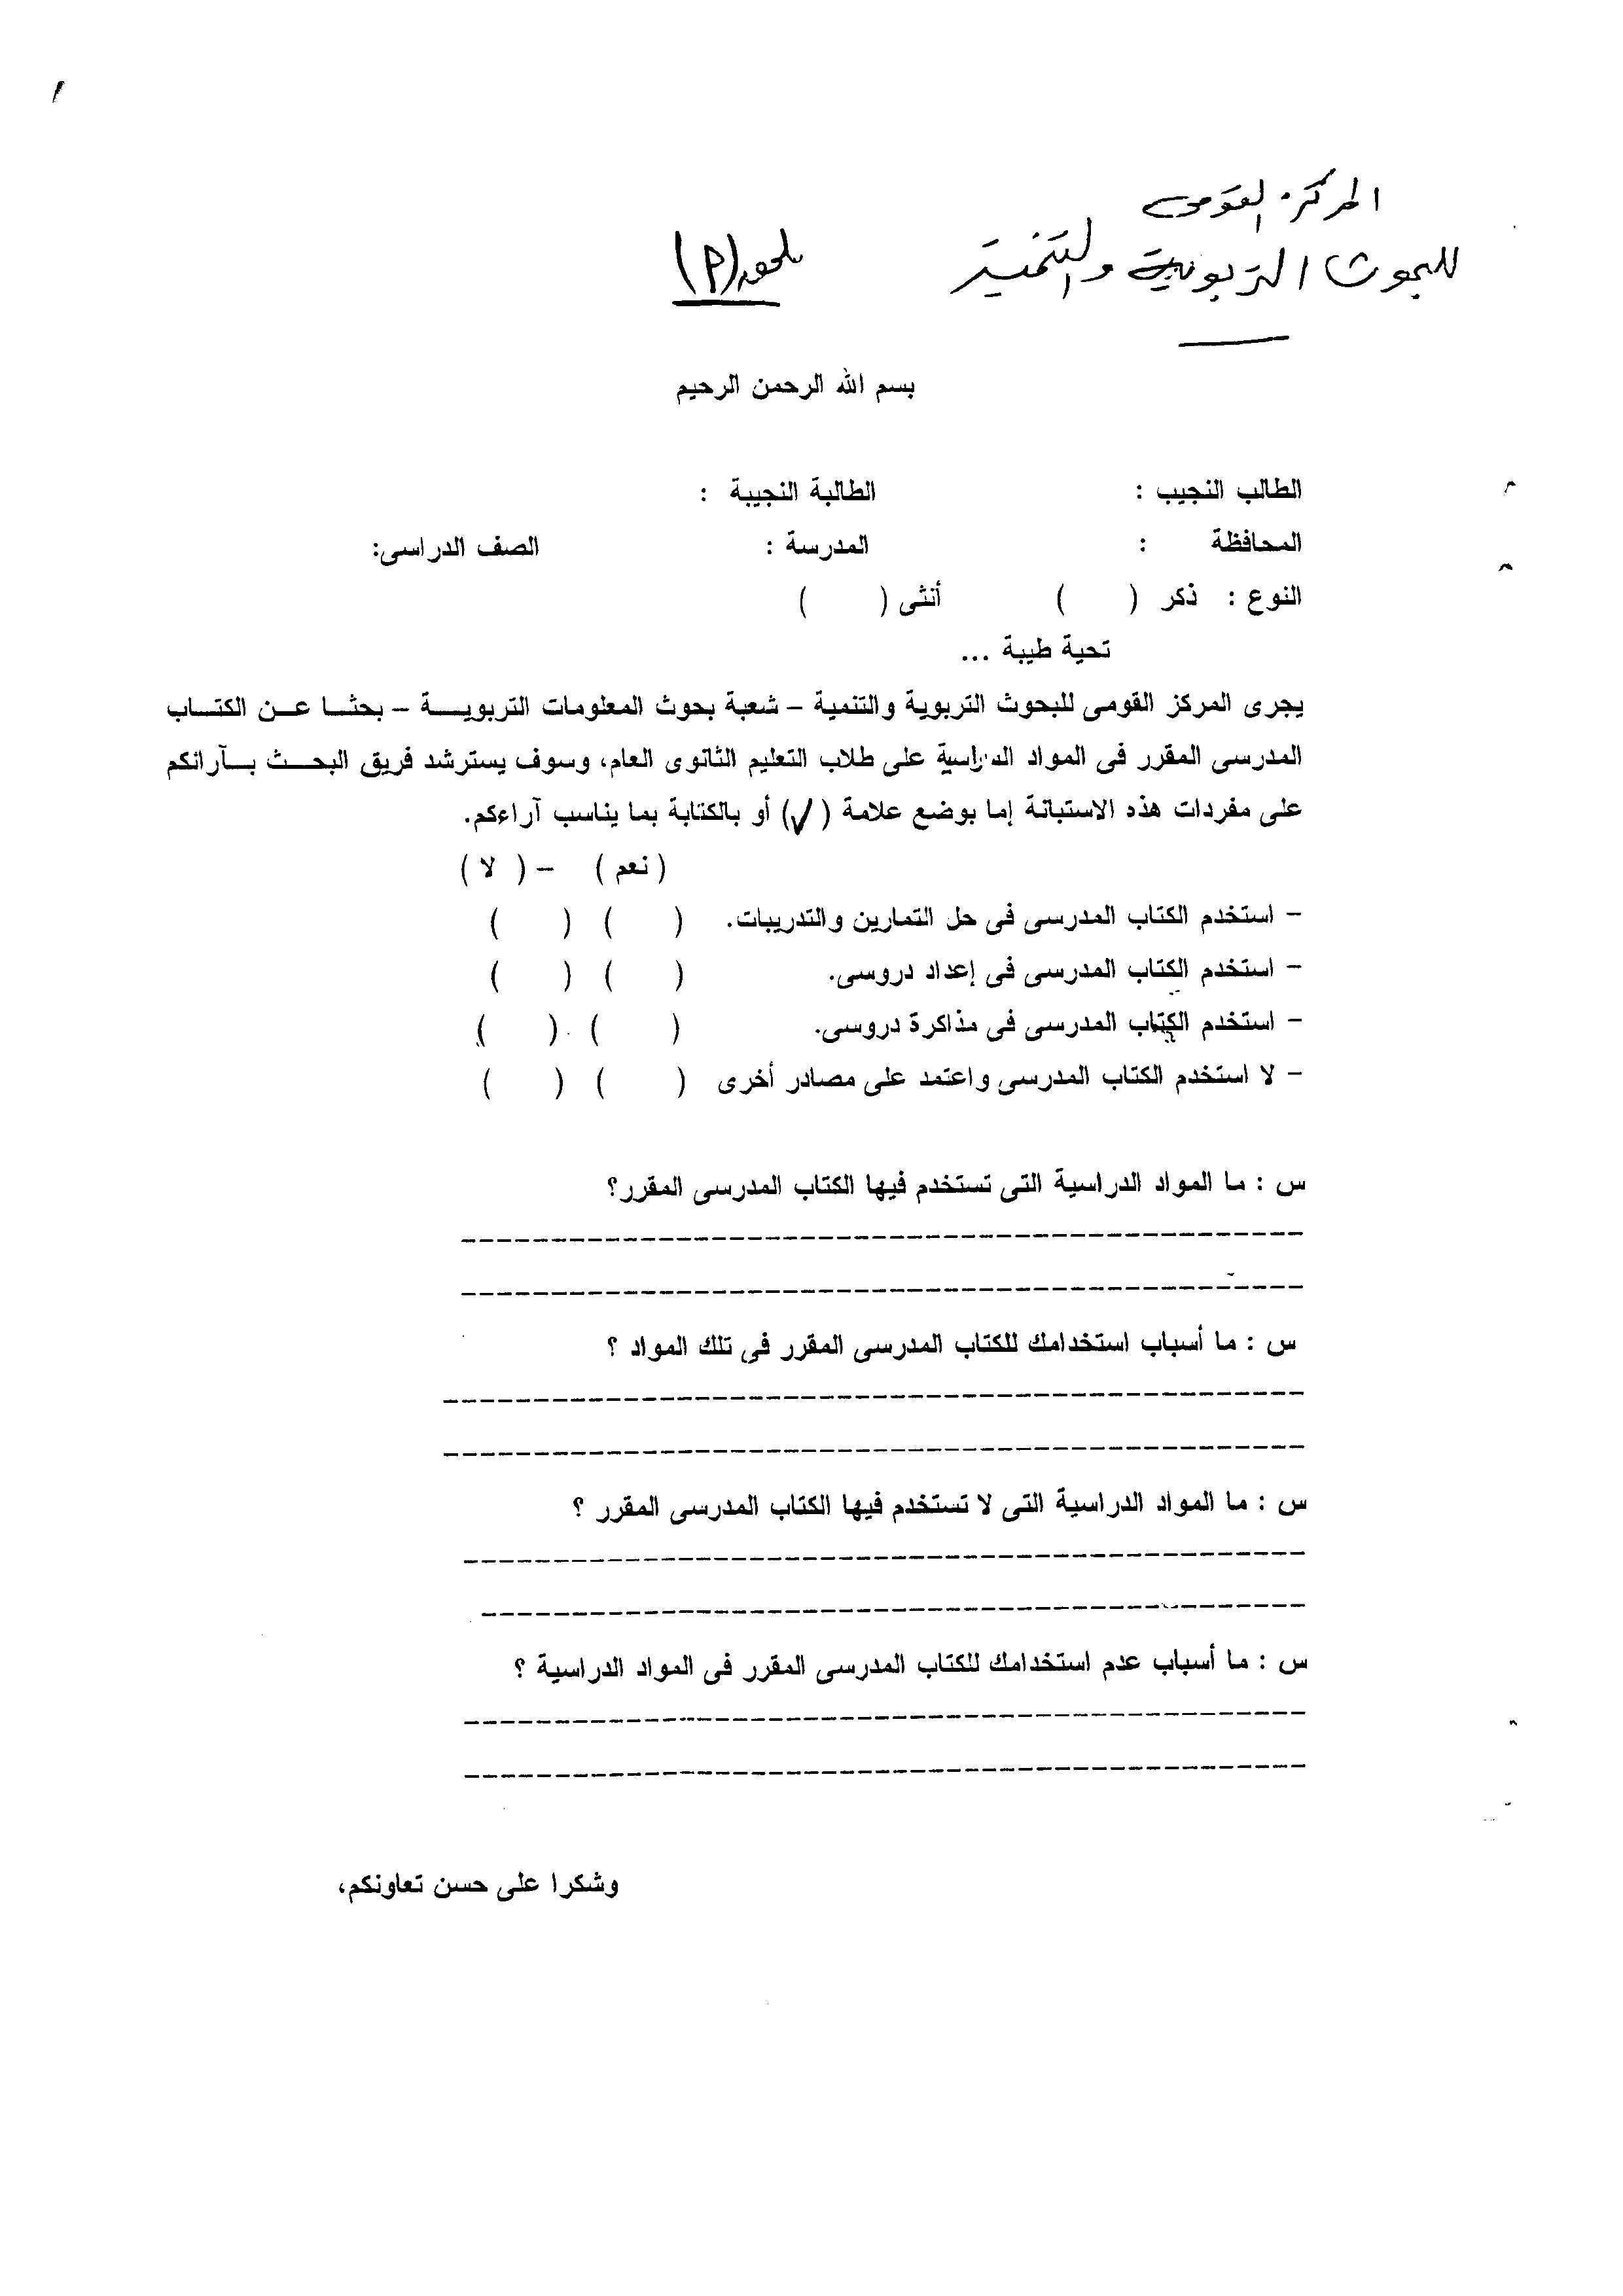 المركز القومى
للبحوث التربوية والتنمية
ملحق (٩)
بسم الله الرحمن الرحيم
الطالب النجيب : الطالبة النجيبة :
المحافظة : المدرسة : الصف الدراسى:
النوع : ذكر ( ) أنثى ( )
تحية طيبة ...
يجرى المركز القومى للبحوث التربوية والتنمية – شعبة بحوث المعلومات التربويــــة – بحثــا عــن الكتــاب
المدرسى المقرر فى المواد الدراسية على طلاب التعليم الثانوى العام، وسوف يسترشد فريق البحــث بــآرائكم
على مفردات هذه الاستبانة إما بوضع علامة (✓) أو بالكتابة بما يناسب آراءكم.
( نعم ) – ( لا )
– استخدم الكتاب المدرسى فى حل التمارين والتدريبات. ( ) ( )
– استخدم الكتاب المدرسى فى إعداد دروسى. ( ) ( )
– استخدم الكتاب المدرسى فى مذاكرة دروسى. ( ) ( )
– لا استخدم الكتاب المدرسى واعتمد على مصادر أخرى ( ) ( )
س : ما المواد الدراسية التى تستخدم فيها الكتاب المدرسى المقرر؟
س : ما أسباب استخدامك للكتاب المدرسى المقرر فى تلك المواد ؟
س : ما المواد الدراسية التى لا تستخدم فيها الكتاب المدرسى المقرر ؟
س : ما أسباب عدم استخدامك للكتاب المدرسى المقرر فى المواد الدراسية ؟
وشكرا على حسن تعاونكم،